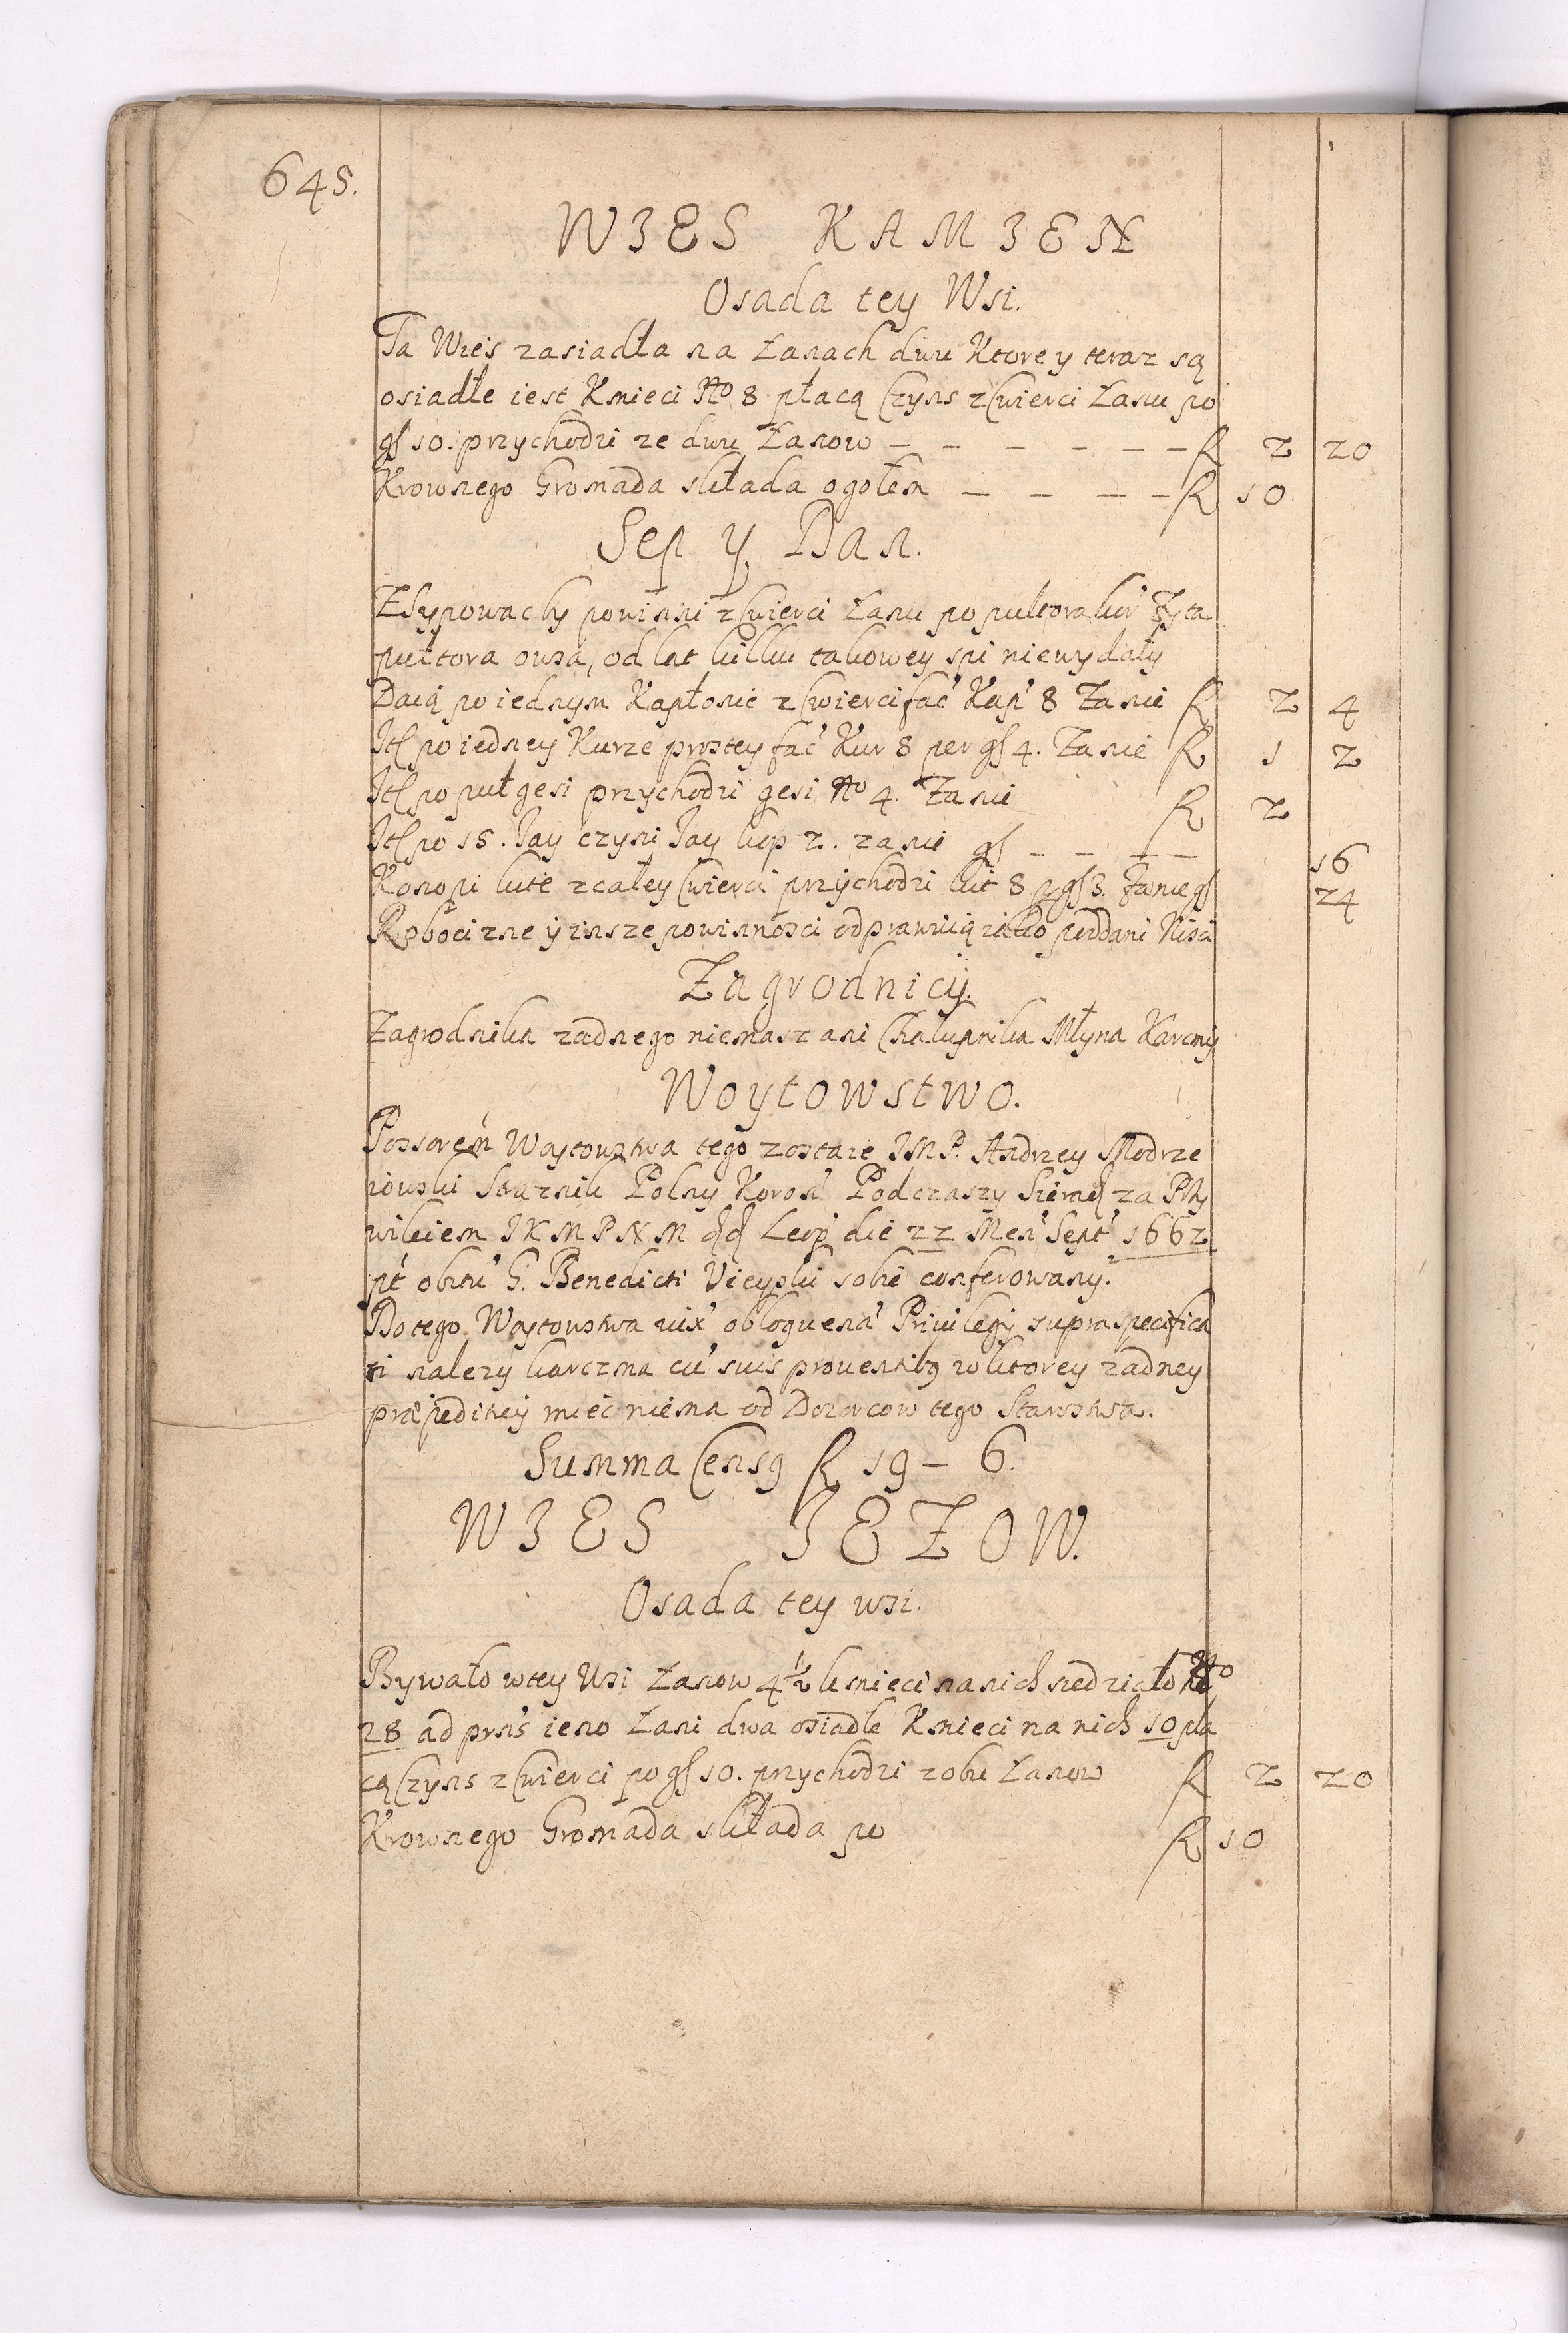 645.
WIES KAMIEN
Osada tey Wsi.
Ta Wieś zasiadła na Łanach dwu Ktore y teraz są
osiadłe iest Kmieci No 8 płacą Czyns z Cwierci Łanu po
gſ 10. przychodzi ze dwu Łanow — — — — — — fl 2 20
Krownego Gromada składa ogołem — — — — fl 10
Sep y Dan.
Zsypowac by powinni z Cwierci Łanu po pułtora kor' Zyta
pułtora owsa, od lat kilku takowey spi niewydały
Daią po iednym Kapłonie z Cwierci fać Kap' 8 Za nie fl 2 4
Itſ po iedney Kurze prostey fać Kur 8 per gſ 4. Za nie fl 1 2
Itſ po puł gesi przychodzi gesi No 4. Za nie fl 2
Itſ po 15. Jay czyni Jay kop 2. za nie gſ — — — — 16
Konopi kite z całey Cwierci przychodzi kit 8 p gſ 3. Za nie gſ 24
Robociznę y insze powinnosci odprawuią iako poddani Nisci
Zagrodnicy.
Zagrodnika zadnego niemasz ani Chałupnika Młyna Karcmy
Woytowstwo.
Possorem Woytowstwa tego zostaie JMP. Andrzey Modrze
iowski Straznik Polny Koron' Podczaszy Sierad za Przy
wileiem JKMPNM dd Leop' die 22 Men' Sept' 1662
pt' obitu' G. Benedicti Vieyski sobie conferowany.
Do tego Woytowstwa iux' obloquena' Privilegij supraspecifica
ti nalezy karczma cu' suis proventib9 w ktorey zadney
præpeditiey mieć niema od Dozorcow tego Starostwa.
Summa Cens9 fl 19 — 6.
WIES JEZOW.
Osada tey wsi.
Bywało w tey Wsi Łanow 4 1/2 kmieci na nich siedziało No
28 ad prns' ieno Łani dwa osiadłe Kmieci na nich 10 pła
cą Czyns z Cwierci po gſ 10. przychodzi z obu Łanow fl 2 20
Krownego Gromada składa po fl 10